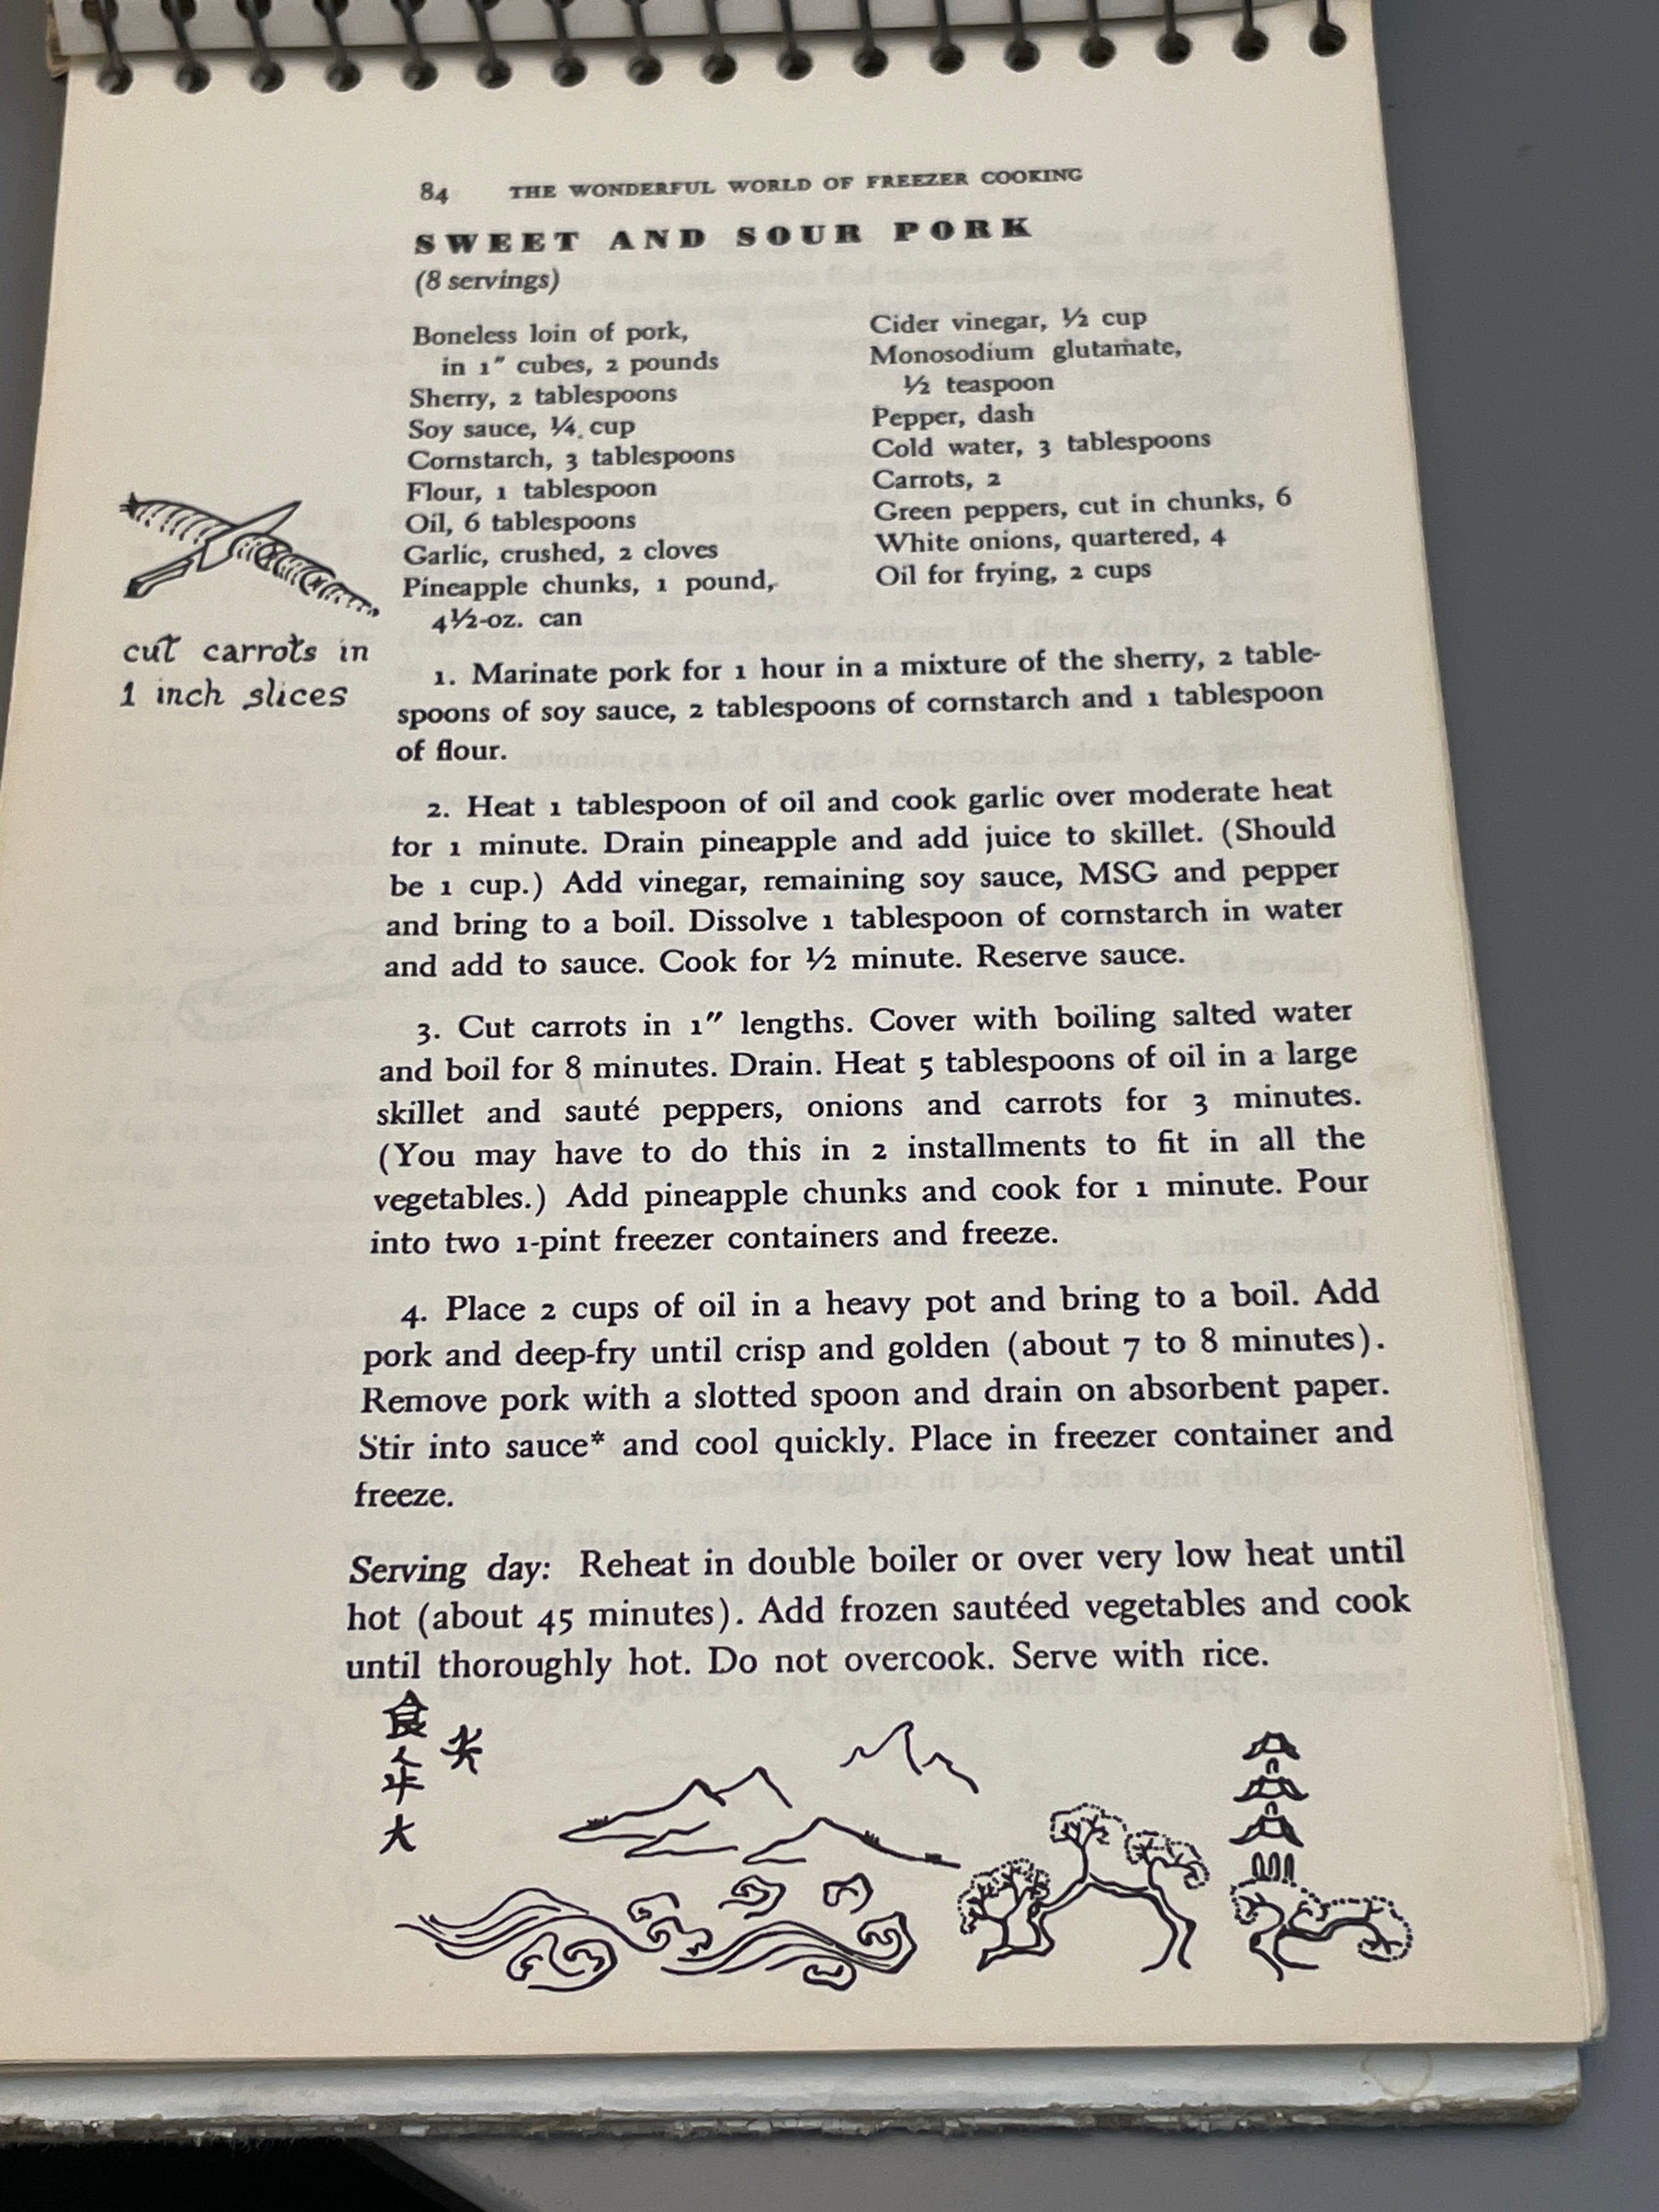 84 THE WONDERFUL WORLD OF FREEZER COOKING
SWEET AND SOUR PORK
(8 servings)
Boneless loin of pork,
in 1" cubes, 2 pounds
Sherry, 2 tablespoons
Soy sauce, ¼ cup
Cornstarch, 3 tablespoons
Flour, 1 tablespoon
Oil, 6 tablespoons
Garlic, crushed, 2 cloves
Pineapple chunks, 1 pound,
4½-oz. can
Cider vinegar, ½ cup
Monosodium glutamate,
½ teaspoon
Pepper, dash
Cold water, 3 tablespoons
Carrots, 2
Green peppers, cut in chunks, 6
White onions, quartered, 4
Oil for frying, 2 cups
cut carrots in
1 inch slices
1. Marinate pork for 1 hour in a mixture of the sherry, 2 table-
spoons of soy sauce, 2 tablespoons of cornstarch and 1 tablespoon
of flour.
2. Heat 1 tablespoon of oil and cook garlic over moderate heat
for 1 minute. Drain pineapple and add juice to skillet. (Should
be 1 cup.) Add vinegar, remaining soy sauce, MSG and pepper
and bring to a boil. Dissolve 1 tablespoon of cornstarch in water
and add to sauce. Cook for ½ minute. Reserve sauce.
3. Cut carrots in 1" lengths. Cover with boiling salted water
and boil for 8 minutes. Drain. Heat 5 tablespoons of oil in a large
skillet and sauté peppers, onions and carrots for 3 minutes.
(You may have to do this in 2 installments to fit in all the
vegetables.) Add pineapple chunks and cook for 1 minute. Pour
into two 1-pint freezer containers and freeze.
4. Place 2 cups of oil in a heavy pot and bring to a boil. Add
pork and deep-fry until crisp and golden (about 7 to 8 minutes).
Remove pork with a slotted spoon and drain on absorbent paper.
Stir into sauce* and cool quickly. Place in freezer container and
freeze.
Serving day: Reheat in double boiler or over very low heat until
hot (about 45 minutes). Add frozen sautéed vegetables and cook
until thoroughly hot. Do not overcook. Serve with rice.
食
大